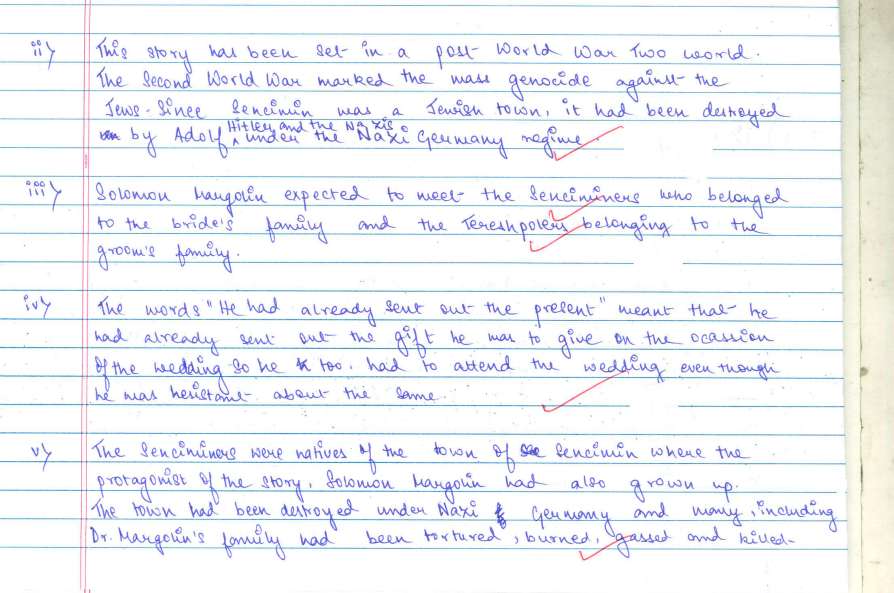 ii) This story has been set in a post World War Two world.
The Second World War marked the mass genocide against the
Jews. Since Sencimin was a Jewish town, it had been destroyed
by Adolf Hitler and the Nazis under the Nazi Germany regime.
iii) Solomon Margolin expected to meet the Senciminers who belonged
to the bride's family and the Tereshpolers belonging to the
groom's family.
iv) The words "He had already sent out the present" meant that he
had already sent out the gift he was to give on the ocassion
of the wedding so he too. had to attend the wedding even though
he was hesistant about the same.
v) The Senciminers were natives of the town of Sencimin where the
protagonist of the story, Solomon Margolin had also grown up.
The town had been destroyed under Nazi Germany and many, including
Dr. Margolin's family had been tortured, burned, gassed and killed.